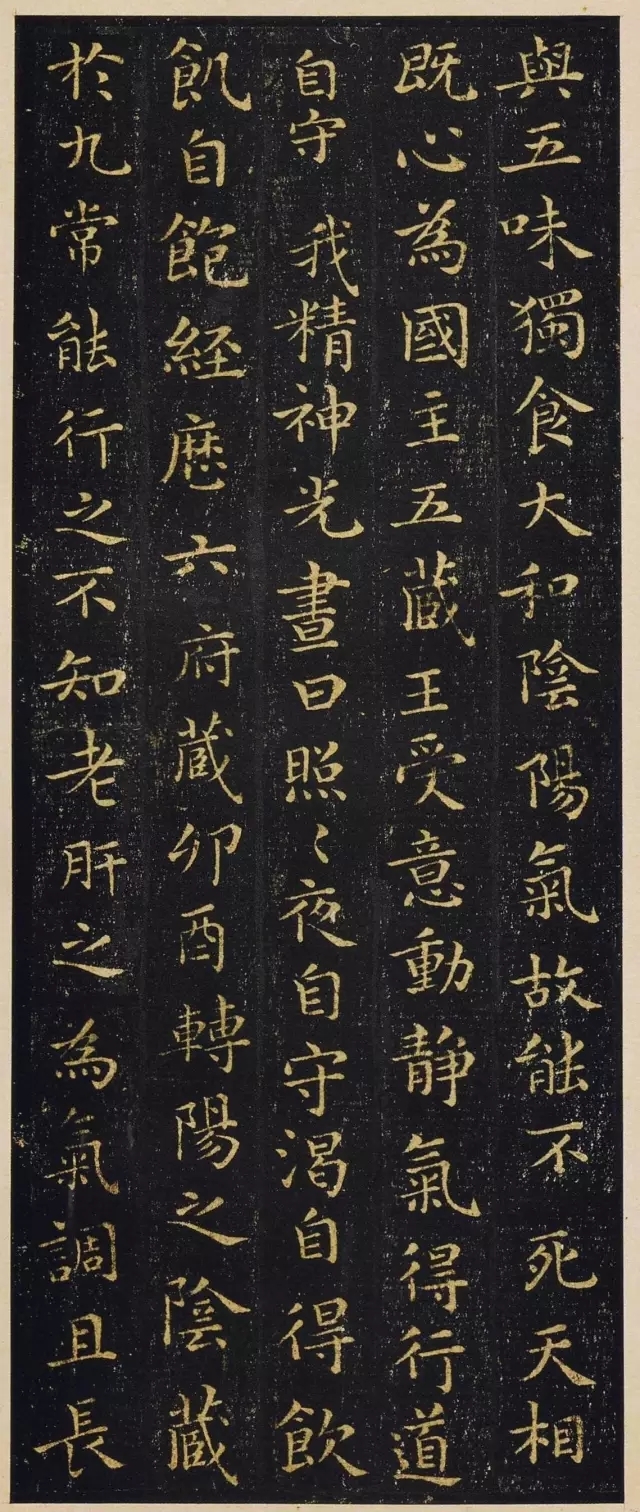 與五味獨食大和陰陽氣故能不死天相
既心為國主五蔵王受意動静氣得行道
自守我精神光晝日照〻夜自守渴自得飲
飢自飽經歷六府蔵卯酉轉陽之陰蔵
於九常能行之不知老肝之為氣調且長